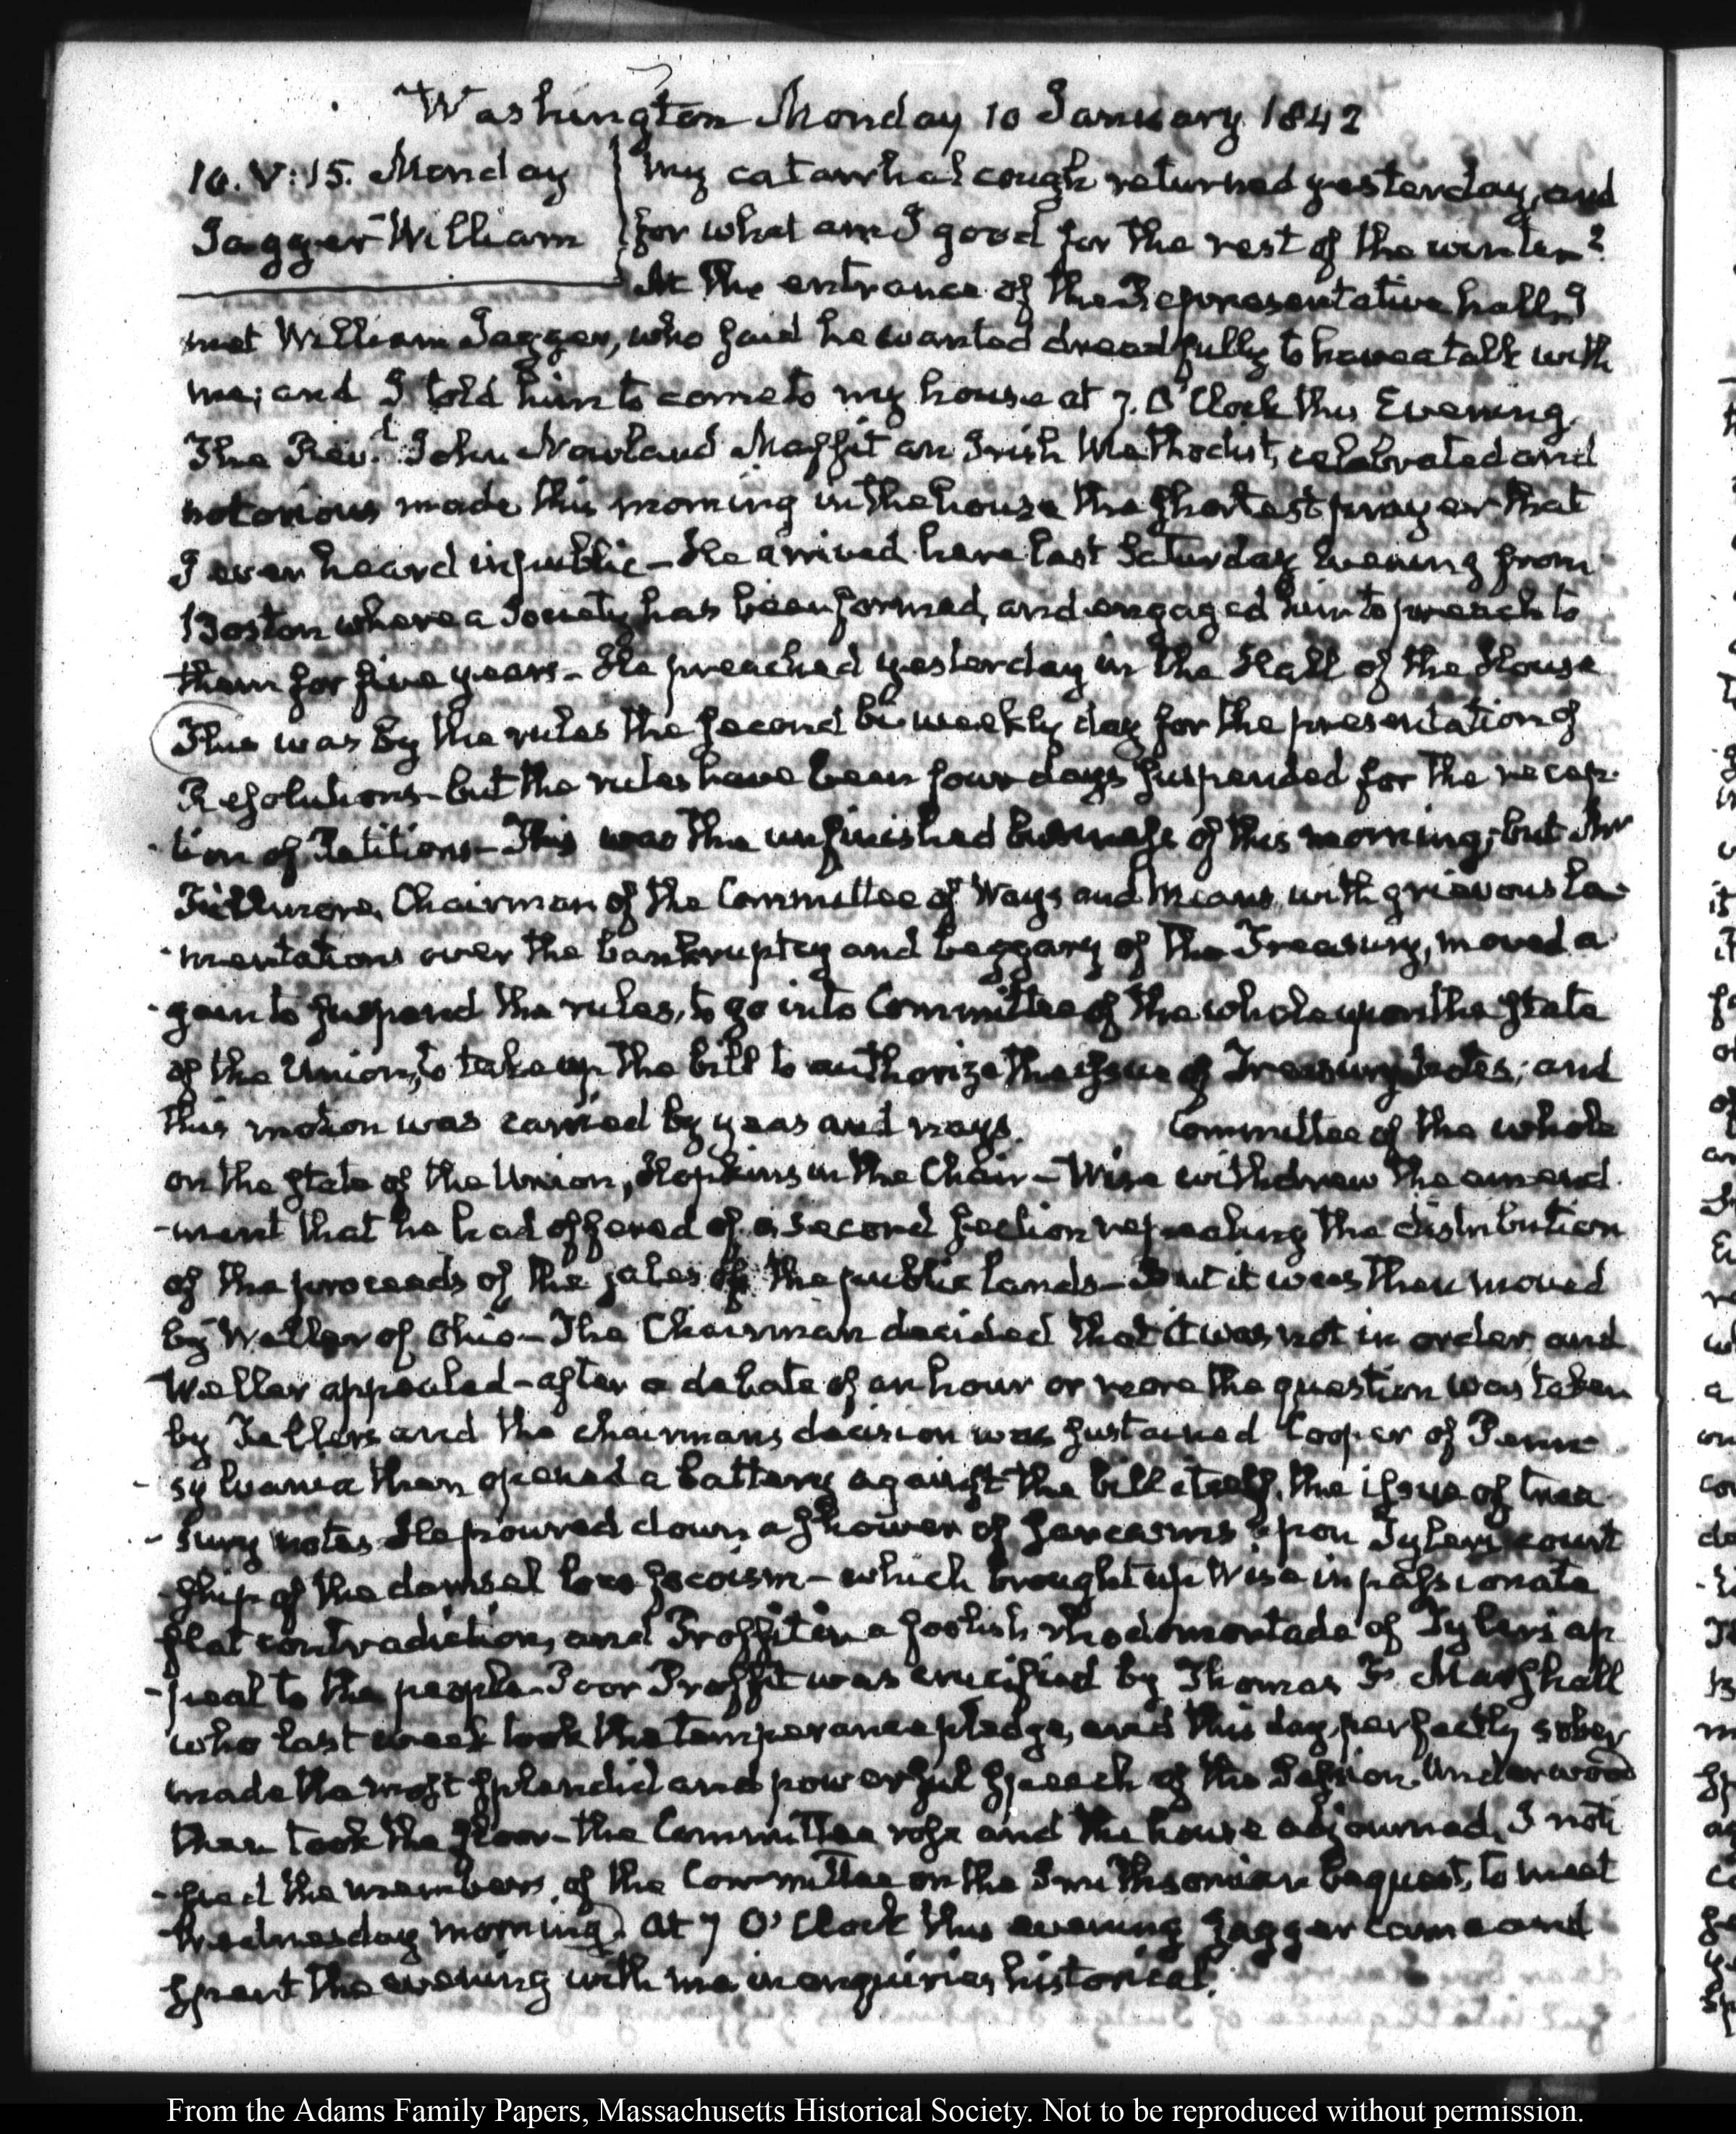 Washington Monday 10 January 1842
10. V:15. Monday
Jagger William
My catarrhal cough returned yesterday, and
for what am I good for the rest of the winter?
At the entrance of the Representative hall, I
met William Jagger, who said he wanted dreadfully to have a talk with
me; and I told him to come to my house at 7. O'Clock this Evening.
The Revd. John Newland Maffit an Irish Methodist, celebrated and
notorious made this morning in the house the shortest prayer that
I ever heard in public - He arrived here last Saturday Evening from
Boston where a Society has been formed, and engaged him to preach to
them for five years - He preached yesterday in the Hall of the House
This was by the rules the second bi weekly day for the presentation of
Resolutions - but the rules have been four days suspended for the recep-
-tion of Petitions - This was the unfinished business of this morning; but Mr
Fillmore, Chairman of the Committee of Ways and Means, with grievous la-
-mentations over the bankruptcy and beggary of the Treasury, moved a-
-gain to suspend the rules, to go into Committee of the whole upon the state
of the Union, to take up the bill to authorize the issue of Treasury Notes; and
this motion was carried by yeas and nays. Committee of the whole
on the state of the Union, Hopkins in the Chair - Wise withdrew the amend-
-ment that he had offered of a second section repealing the distribution
of the proceeds of the sales of the public lands - But it was then moved
by Weller of Ohio - The Chairman decided that it was not in order, and
Weller appealed - after a debate of an hour or more the question was taken
by Tellers and the chairmans decision was sustained Cooper of Penn-
-sylvania then opened a battery against the bill itself, the issue of trea-
-sury notes He poured down a shower of sarcasms upon Tylers court-
-ship of the damsel loco focoism - which brought up Wise in passionate
flat contradiction, and Proffit in a foolish rhodomontade of Tylers ap-
-peal to the people - Poor Proffit was crucified by Thomas F. Marshall
who last week took the temperance pledge, and this day, perfectly sober
made the most splendid and powerful speech of the Session. Underwood
then took the floor - the Committee rose and the house adjourned. I noti-
-fied the members of the Committee on the Smithsonian bequest, to meet
Wednesday morning. At 7 O'Clock this evening Jagger came and
spent the evening with me in enquiries historical.
From the Adams Family Papers, Massachusetts Historical Society. Not to be reproduced without permission.